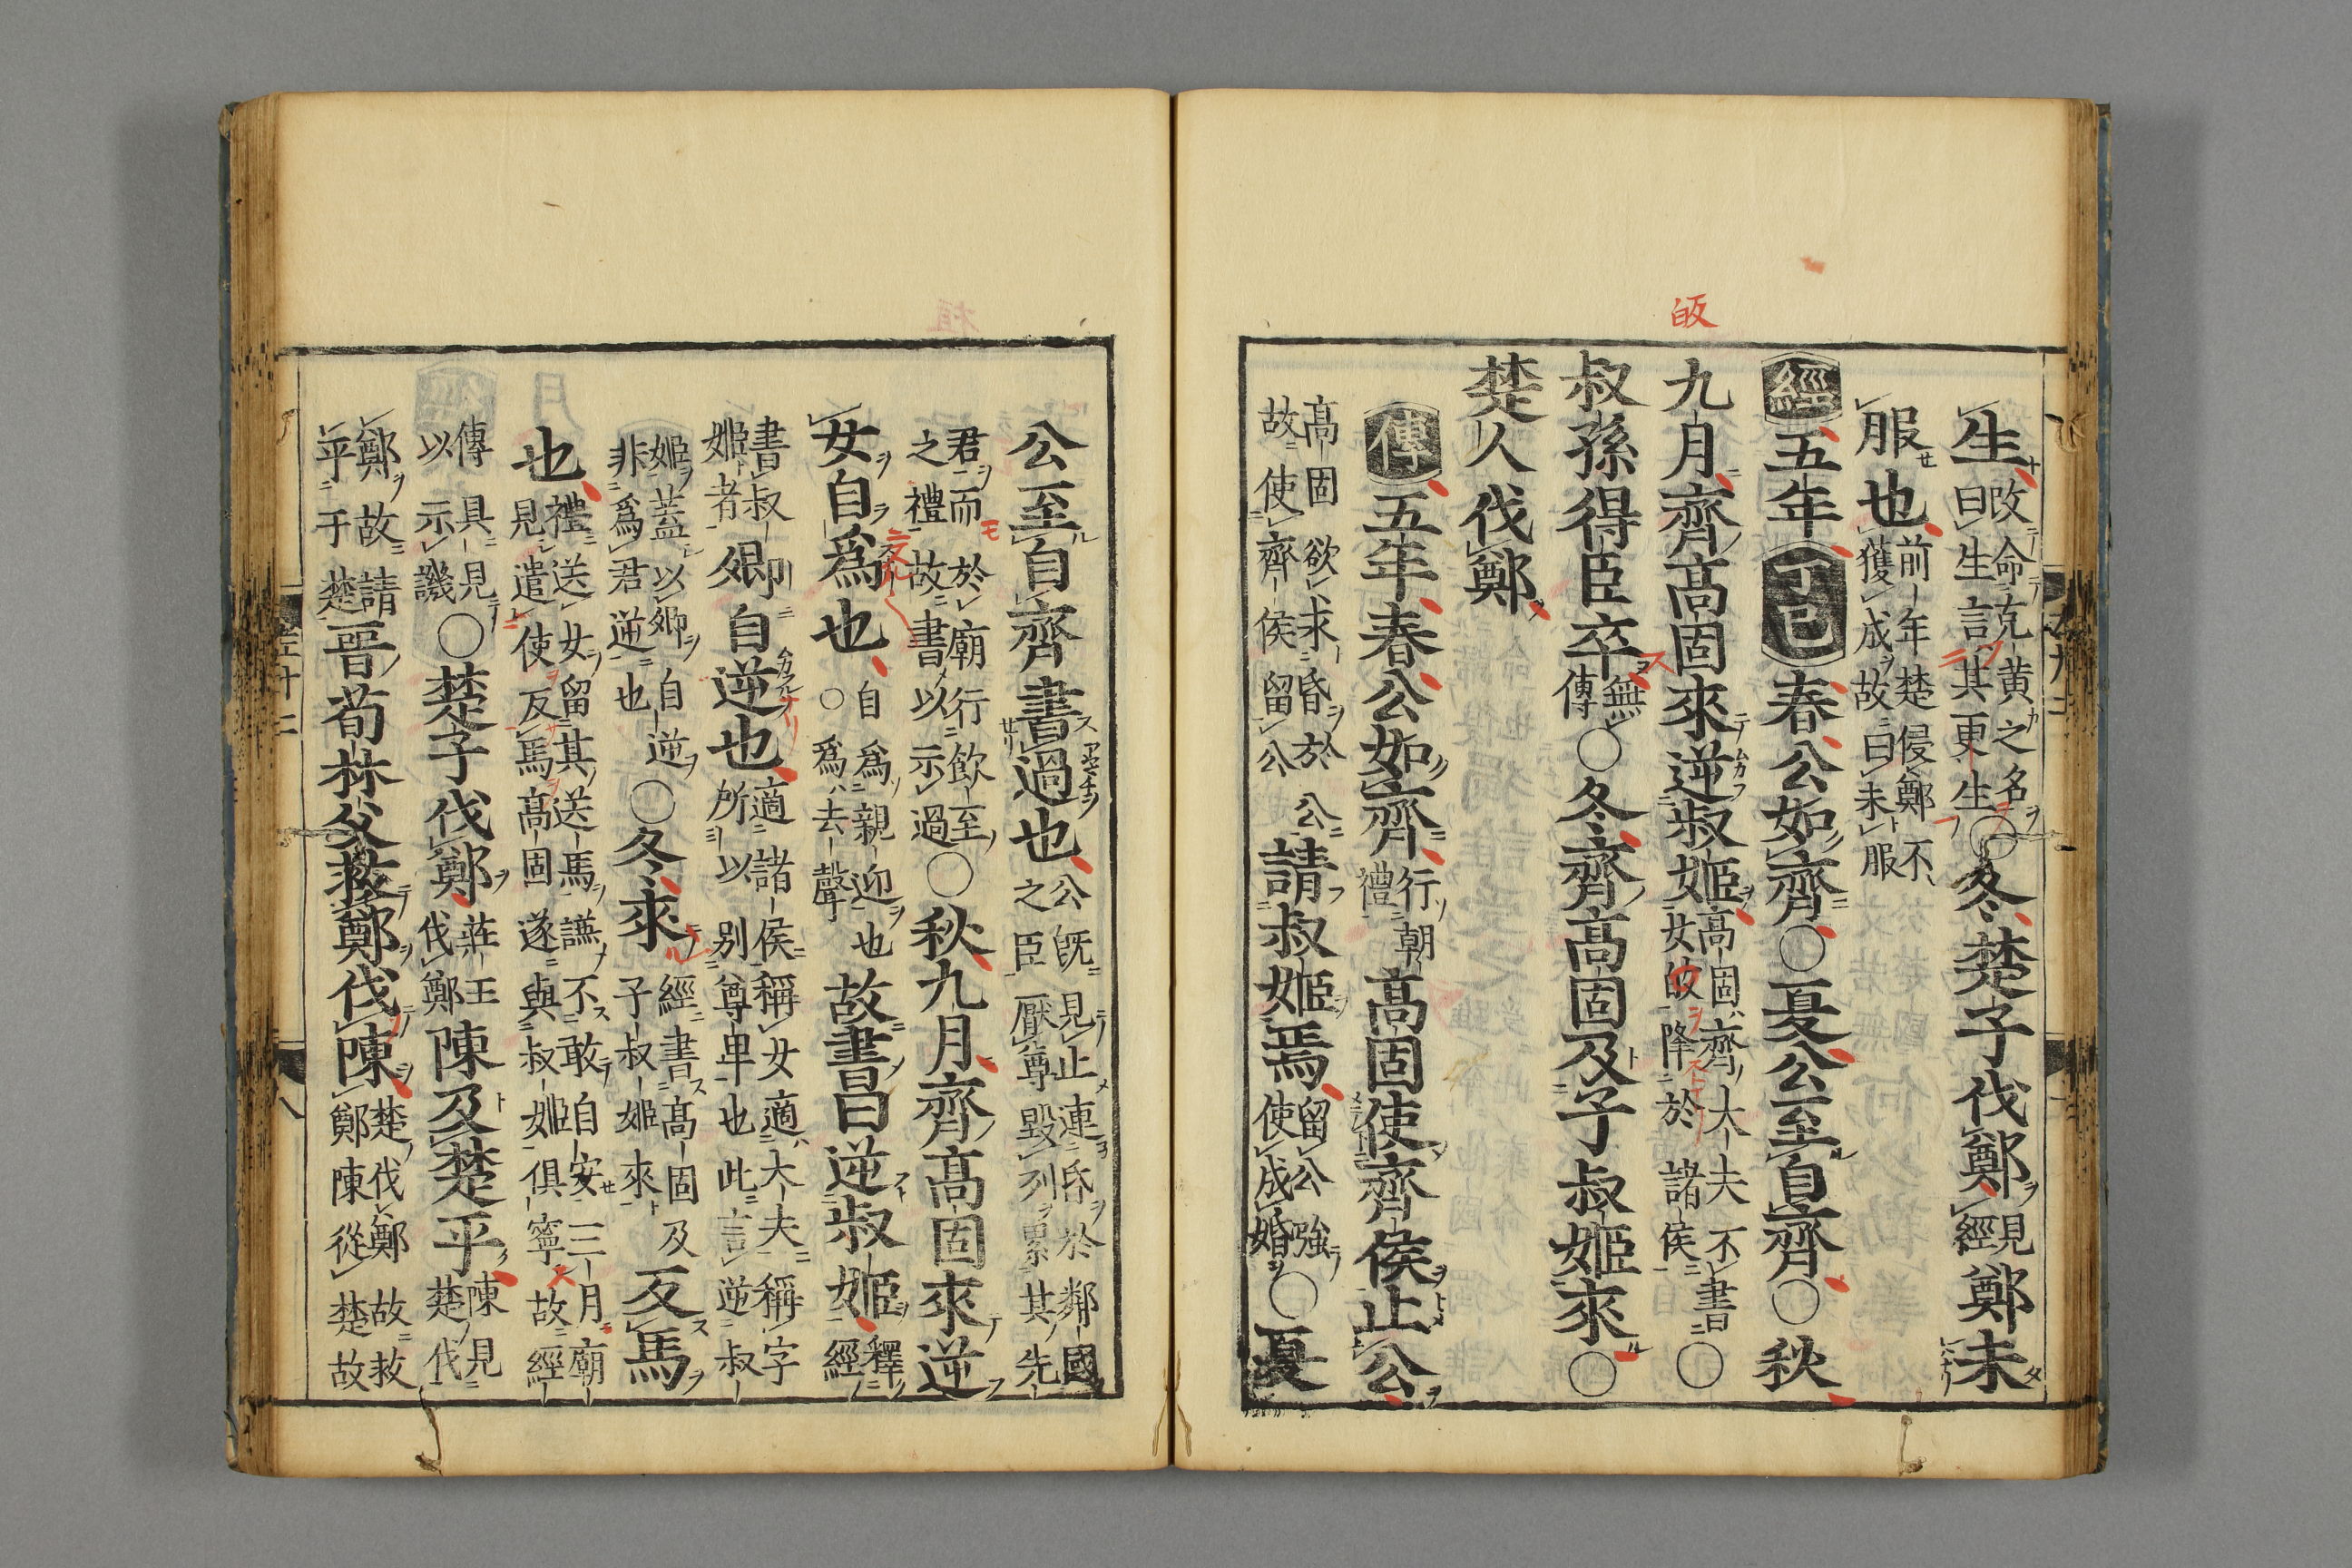 皈
生改命克黄之名曰生言其更生○冬楚子伐鄭見經鄭未
服也前年楚侵鄭不獲成故曰未服
經五年丁巳春公如齊○夏公至自齊○秋
九月齊高固來逆叔姬高固齊大夫不書女皈降於諸侯○
叔孫得臣卒無傳○冬齊高固及子叔姬來○
楚人伐鄭
傳五年春公如齊行朝禮高固使齊侯止公
高固欲求昏於公故使齊侯留公請叔姬焉留公強使成婚○夏
公至自齊書過也公既見止連昏於鄰國之臣厭尊毀列累其先
君而於廟行飲至之禮故書以示過○秋九月齊高固來逆
女自爲也自爲爲親迎也○爲去聲故書曰逆叔姬釋經
書叔姬者卿自逆也適諸侯稱女適大夫稱字所以別尊卑也此言逆叔
姬蓋以卿自逆非爲君逆也○冬來經書高固及子叔姬來反馬
也禮送女留其送馬謙不敢自安三月廟見遣使反馬高固遂與叔姬俱寧故經
傳具見以示譏○楚子伐鄭莊王伐鄭陳及楚平陳見楚伐
鄭故請平于楚晉荀林父救鄭伐陳楚伐鄭故救鄭陳從楚故
左十二
八